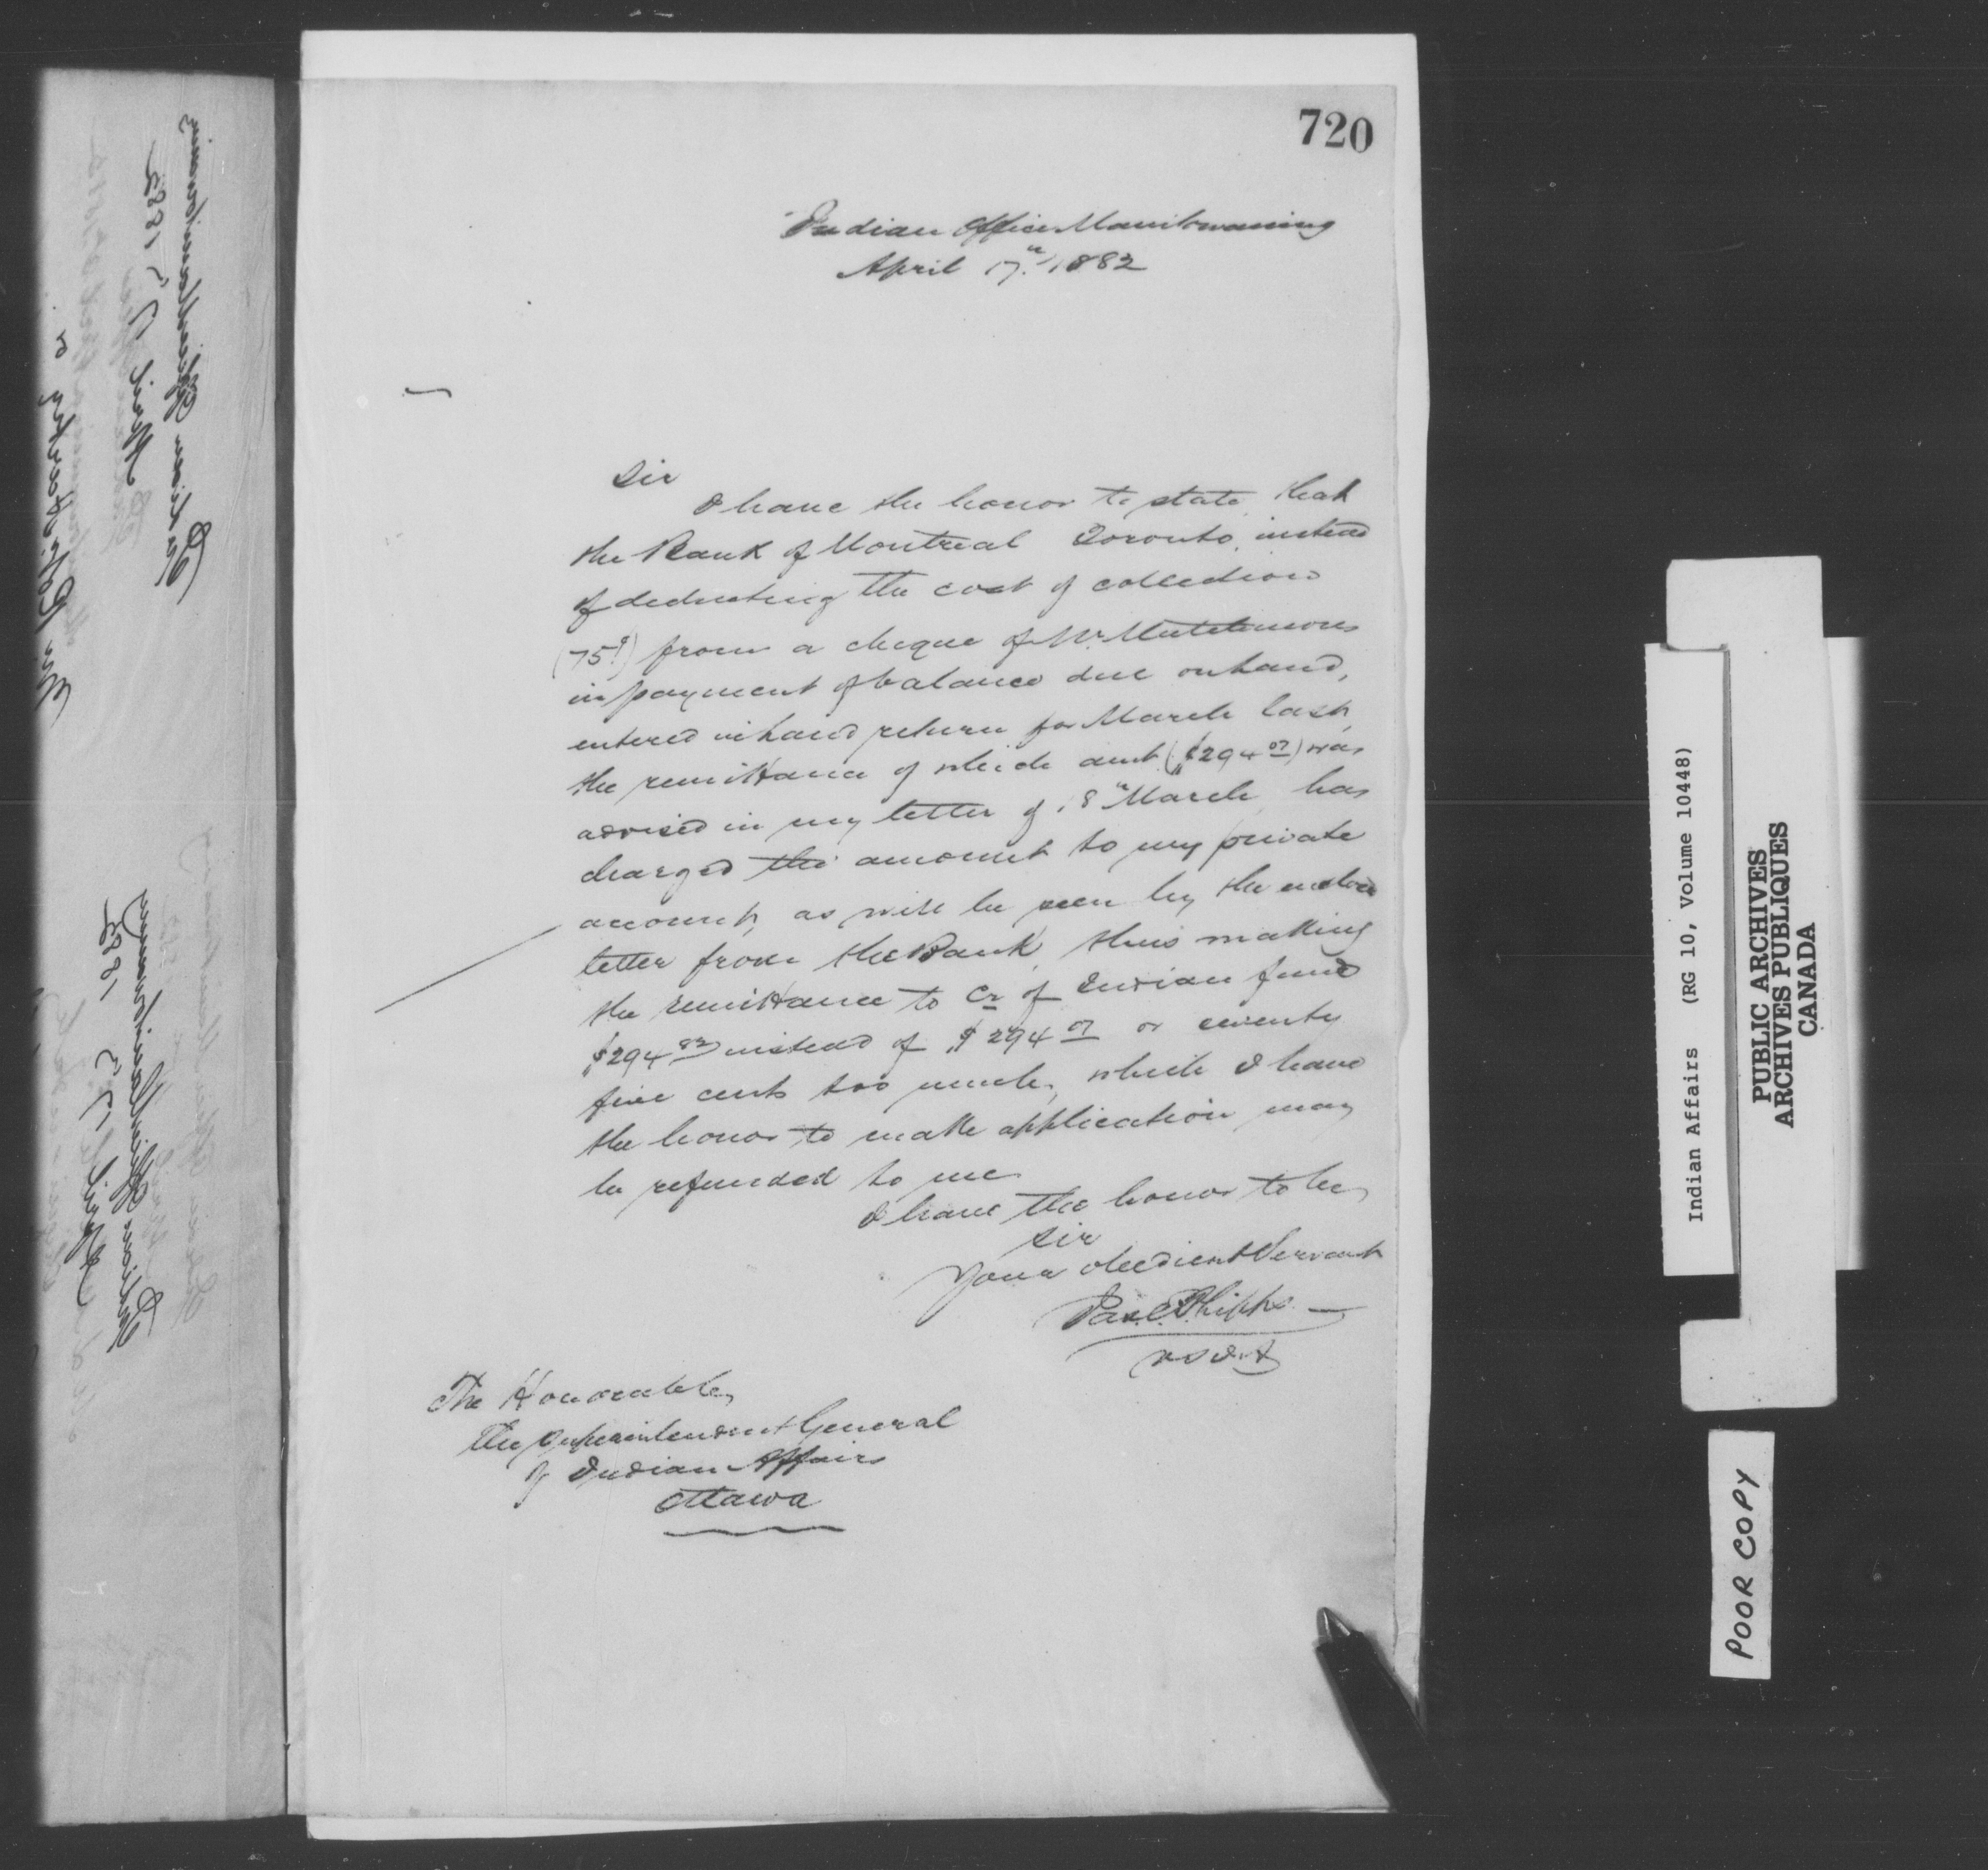 720
Indian Office Manitowaning
April 17th 1882
Sir
I have the honor to state, that
the Bank of Montreal Toronto, instead
of deducting the cost of collection
(75c) from a cheque of Mr.
in payment of balance due on land,
entered in land return for March last,
the remittance of which amt ($294 07) was
advised in my letter of 18th March, has
charged the amount to my private
account, as will be seen by the enclosed
letter from the Bank, thus making
the remittance to Cr of Indian fund
$294 82 instead of $294 07 or seventy
five cents too much, which I have
the honor to make application may
be refunded to me
I have the honor to be
Sir
Your obedient Servant
Jas. C. Phipps
The Honorable,
The Superintendent General
of Indian Affairs
Ottawa
Indian Office Manitowaning
April 17 1882
Indian Office Manitowaning
April 17 1882
Indian Affairs (RG 10, Volume 10448)
PUBLIC ARCHIVES
ARCHIVES PUBLIQUES
CANADA
POOR COPY